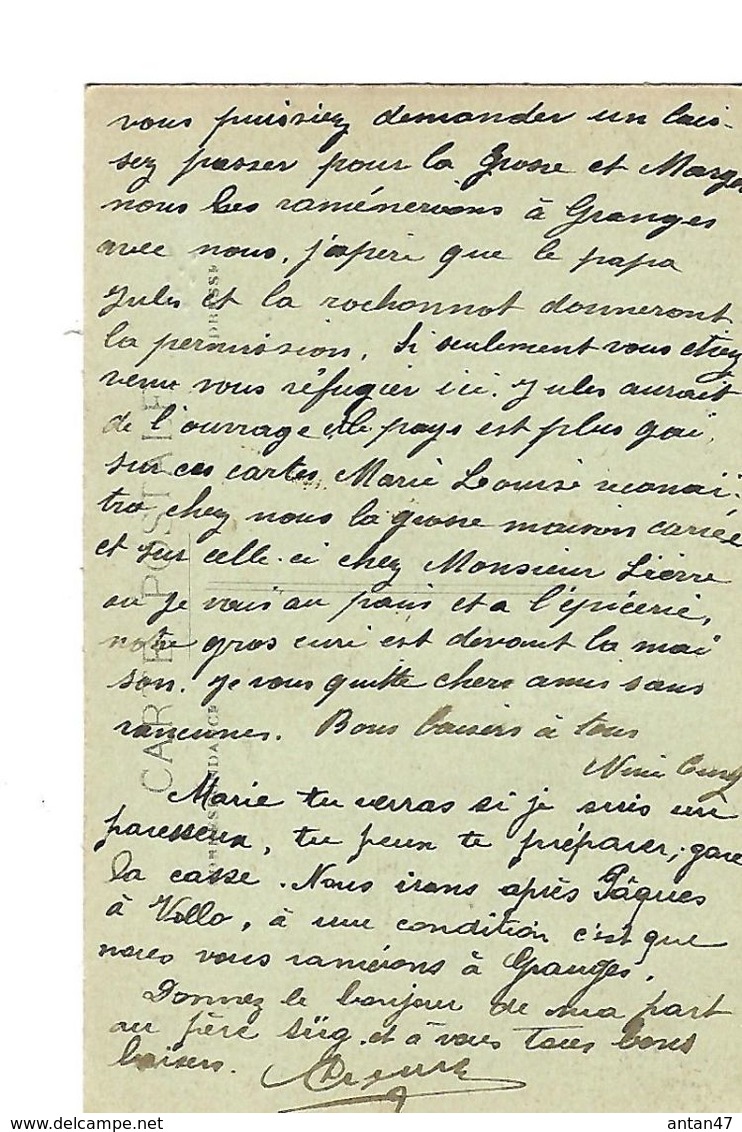 vous puissiez demander un lais-
sez passer pour la grosse et
nous les raménerions à Granges
avec nous, j'aperè que le papa
Jules et la rochonnot donneront
la permission, Si seulement vous étiez
venu vous réfugier ici. Jules aurait
de l'ouvrage et le pays est plus gai,
sur ces cartes Marie Louise reconai-
tra chez nous la grosse maison carrée
et sur celle-ci chez Monsieur Lièrre
ou je vais au pain et a l'épicerie,
notre gros curé est devant la mai
son. je vous quitte chers amis sans
rancunes. Bons baisers à tous
Nini
Marie tu verras si je suis un
paresseux, tu peux te préparer, gare
la casse. Nous irons après Pâques
à Vollo, à une condition c'est que
nous vous ramérons à Granges.
Donnez le bonjour de ma part
au père Süg. et à vous tous bons
baisers.
CARTE POSTALE
CORRESPONDANCE
ADRESSE
antan47